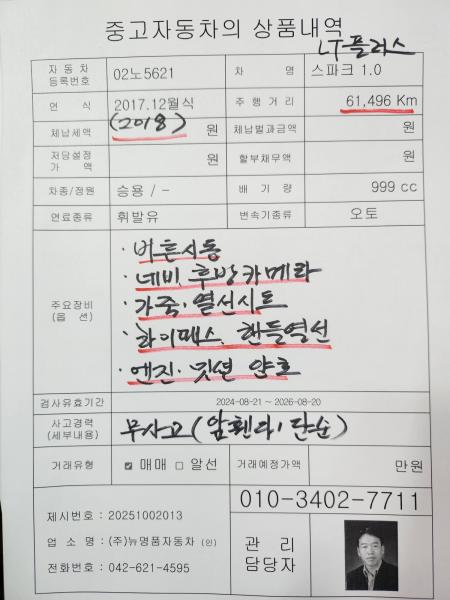 중고자동차의 상품내역
LT플러스
자 동 차 등록번호 02노5621 차 명 스파크 1.0
연 식 2017.12월식 주 행 거 리 61,496 Km
(2018)
체납세액 원 체납벌과금액 원
저당설정 가 액 원 할부채무액 원
차종/정원 승용 / - 배 기 량 999 cc
연료종류 휘발유 변속기종류 오토
주요장비 (옵 션)
· 버튼시동
· 네비. 후방카메라
· 가죽·열선시트
· 하이패스. 핸들열선
· 엔진·밋션 양호
검사유효기간 2024-08-21 ~ 2026-08-20
사고경력 (세부내용) 무사고(앞휀다1단순)
거래유형 ☑ 매매 □ 알선 거래예정가액 만원
010-3402-7711
제시번호 : 20251002013
업 소 명 : (주)뉴명품자동차 (인)
전화번호 : 042-621-4595
관 리
담당자